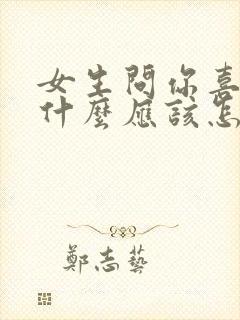 女生問你喜
什麼應該怎
鄭志藝